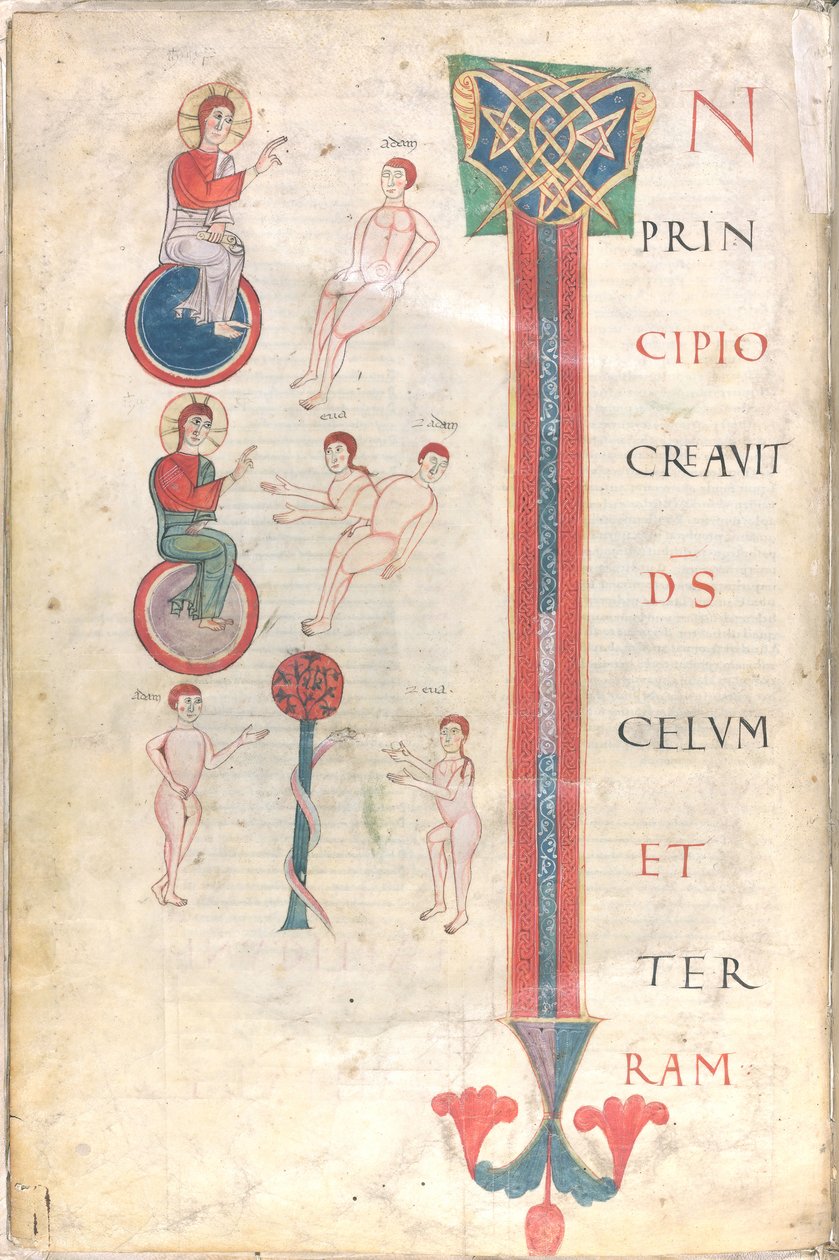 adam
eua
⁊ adam
adam
⁊ eua.
IN
PRIN
CIPIO
CREAVIT
D̅S
CELVM
ET
TER
RAM